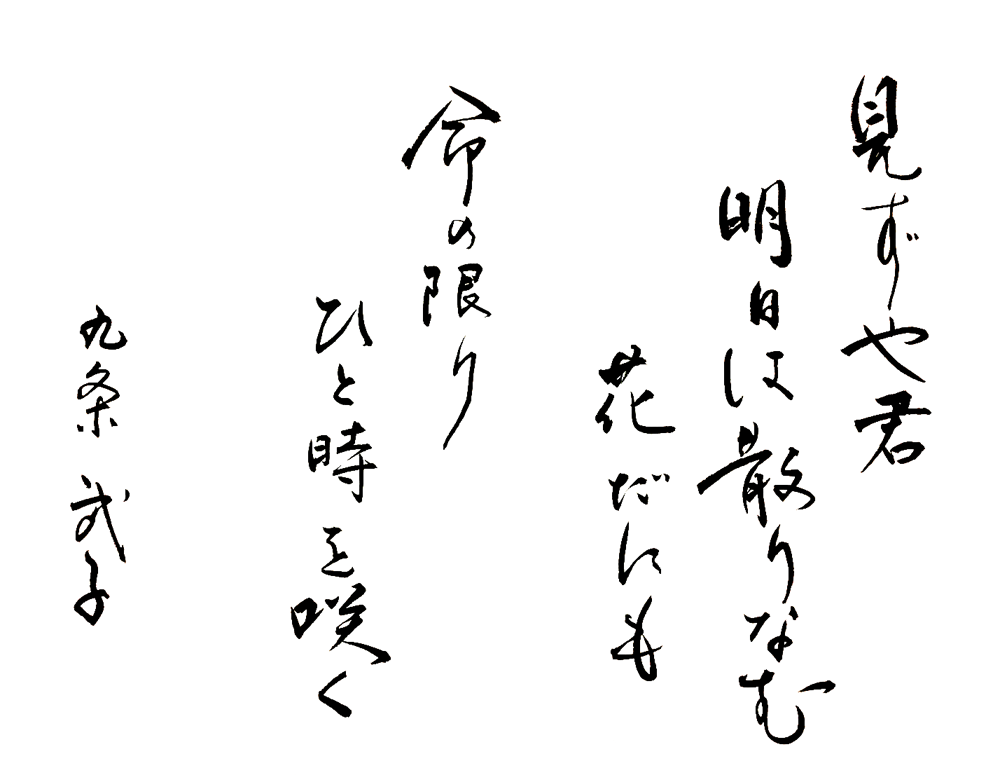 見ずや君
明日は散りなむ
花だにも
命の限り
ひと時を咲く
九条武子